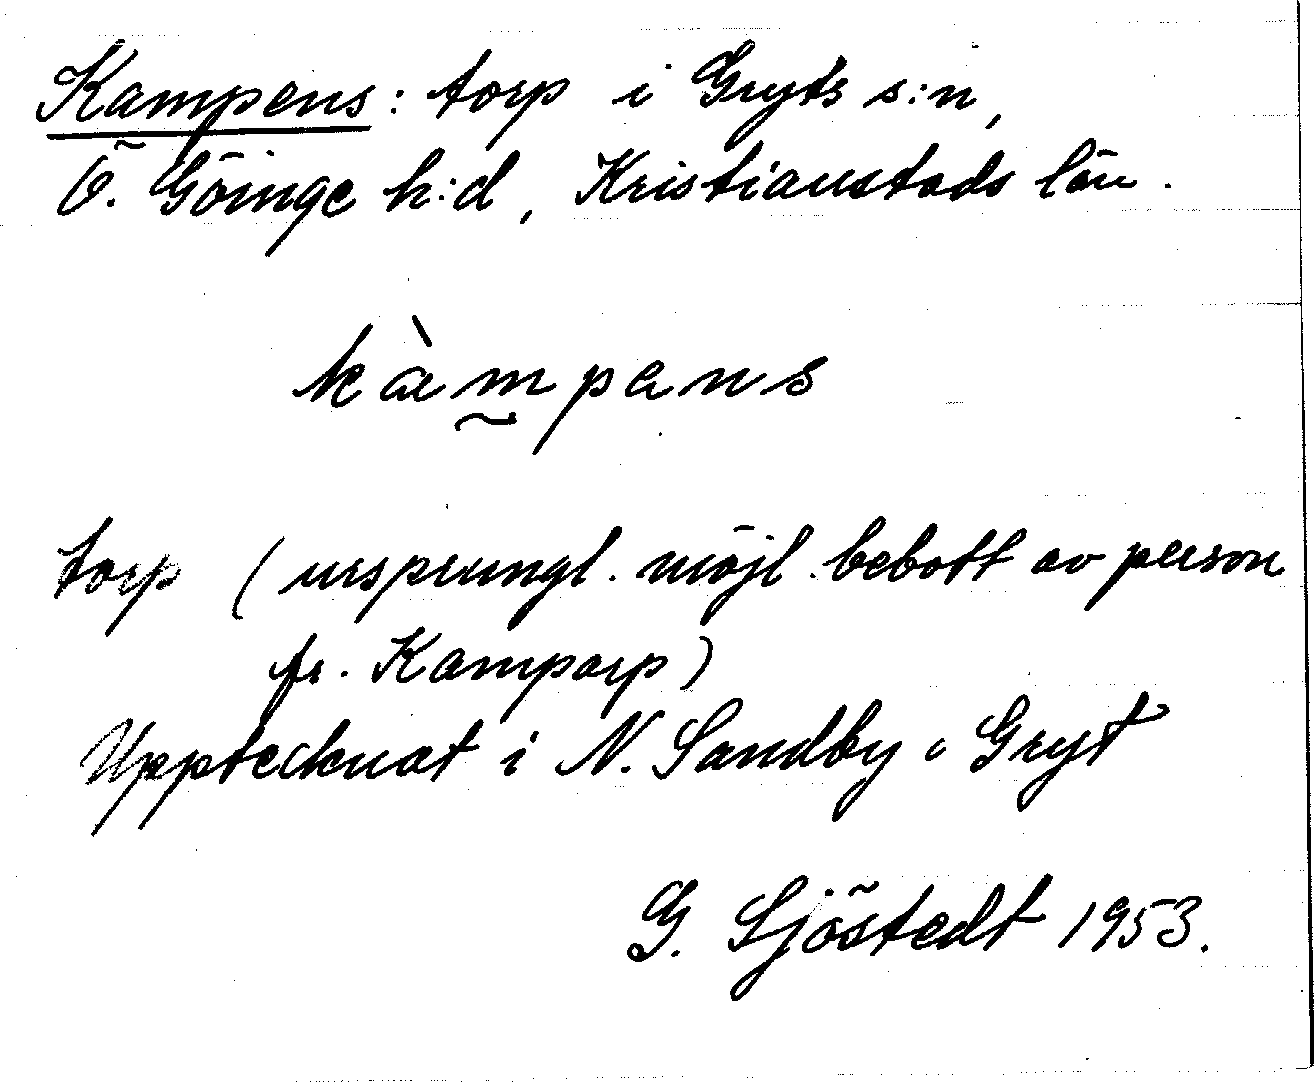 Kampens: torp i Gryts s:n,
Ö. Göinge h:d, Kristianstads län.
kàmpens
torp (ursprungl. möjl. bebott av person
fr. Kamporp)
Upptecknat i N. Sandby o Gryt
G. Sjöstedt 1953.